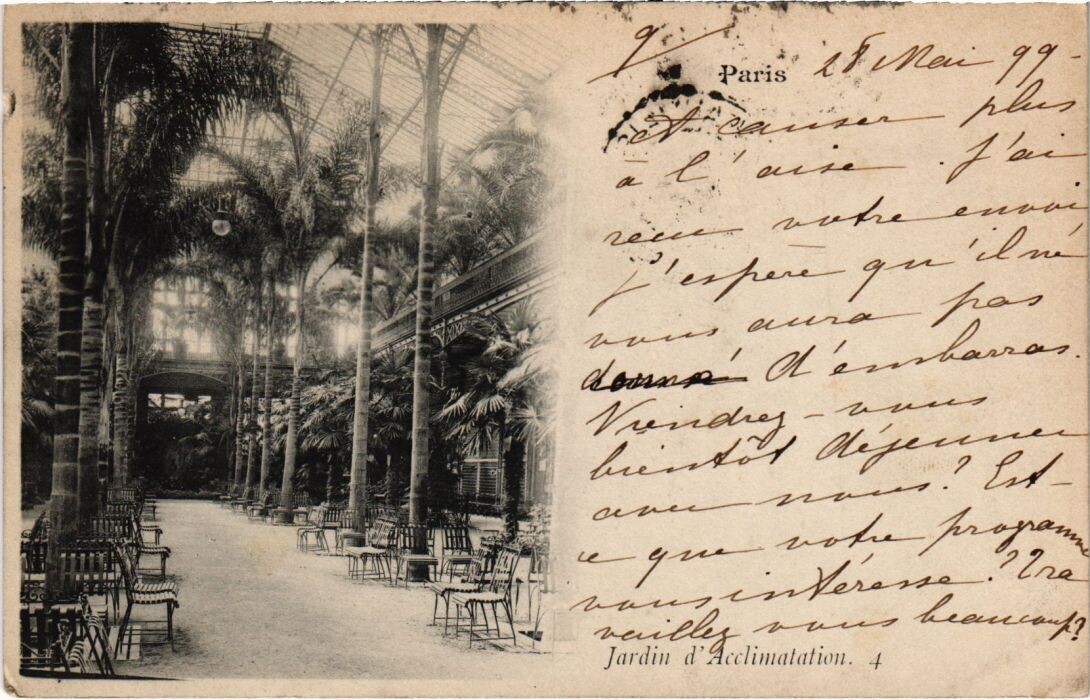 Paris 28 Mai 99-
et causer plus
à l'aise. J'ai
recu votre envoi
J'espère qu'il ne
vous aura pas
donné d'embarras.
Viendrez-vous
bientôt déjeuner
avec nous? Est-
ce que votre programme
vous intéresse? Tra
vaillez vous beaucoup?
Jardin d'Acclimatation. 4